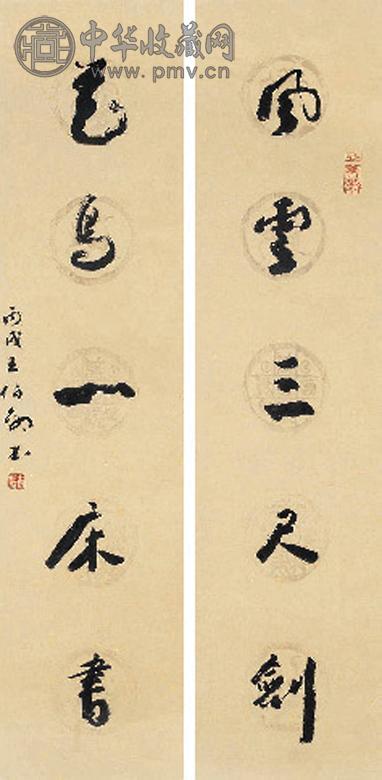 中华收藏网
www.pmv.cn
風雲三尺劍
花鳥一床書
丙戌王伯敏書